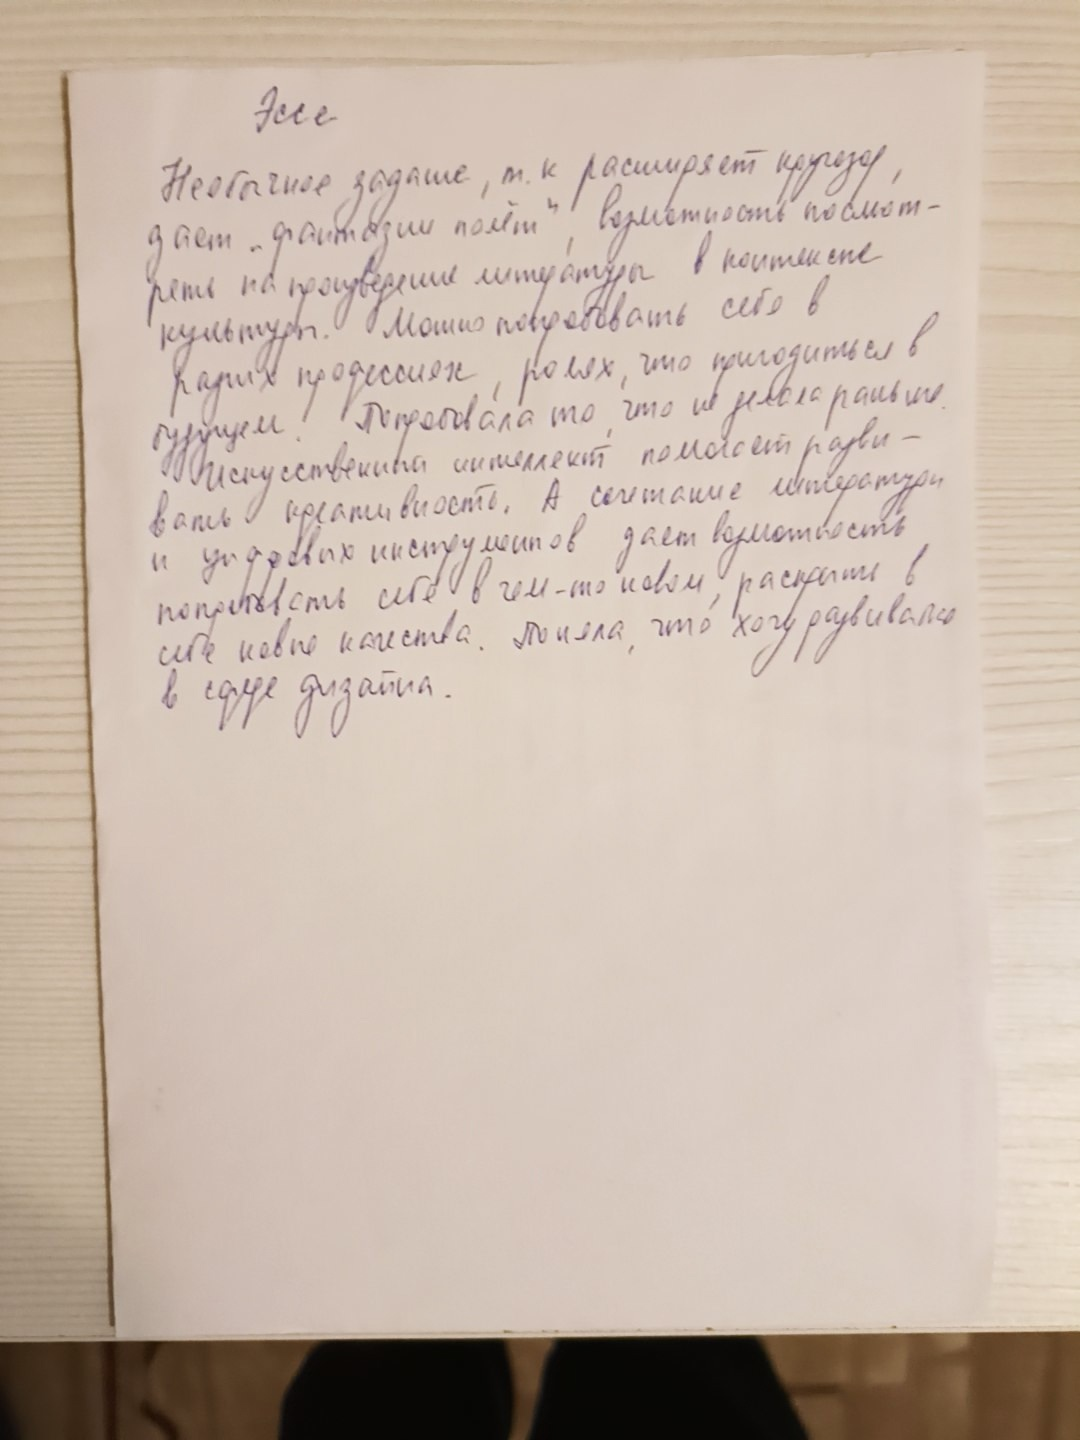 Эссе
Необычное задание, т.к расширяет кругозор,
дает „фантазии полёт“, возможность посмот-
реть на произведение литературы в контексте
культуры. Можно попробовать себя в
разных профессиях, ролях, что пригодиться в
будущем. Попробовала то, что не делала раньше.
Искусственный интеллект помогает разви-
вать креативность. А сочетание литературы
и цифровых инструментов дает возможность
попробовать себя в чем-то новом, раскрыть в
себе новые качества. Поняла, что хочу
в сфере дизайна.